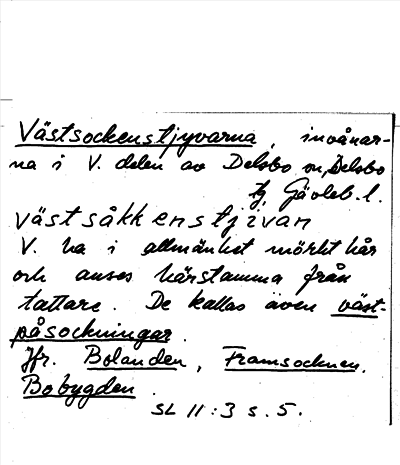 Västsockenstjyvarna, invånar-
na i V. delen av Delsbo sn, Delsbo
tg, Gävleb. l.
västsåkkenstjivan
V. ha i allmänhet mörkt hår
och anses härstamma från
tattare. De kallas även väst-
påsockningar.
Jfr. Bolanden, Framsocknen,
Bobygden.
SL 11:3 s. 5.